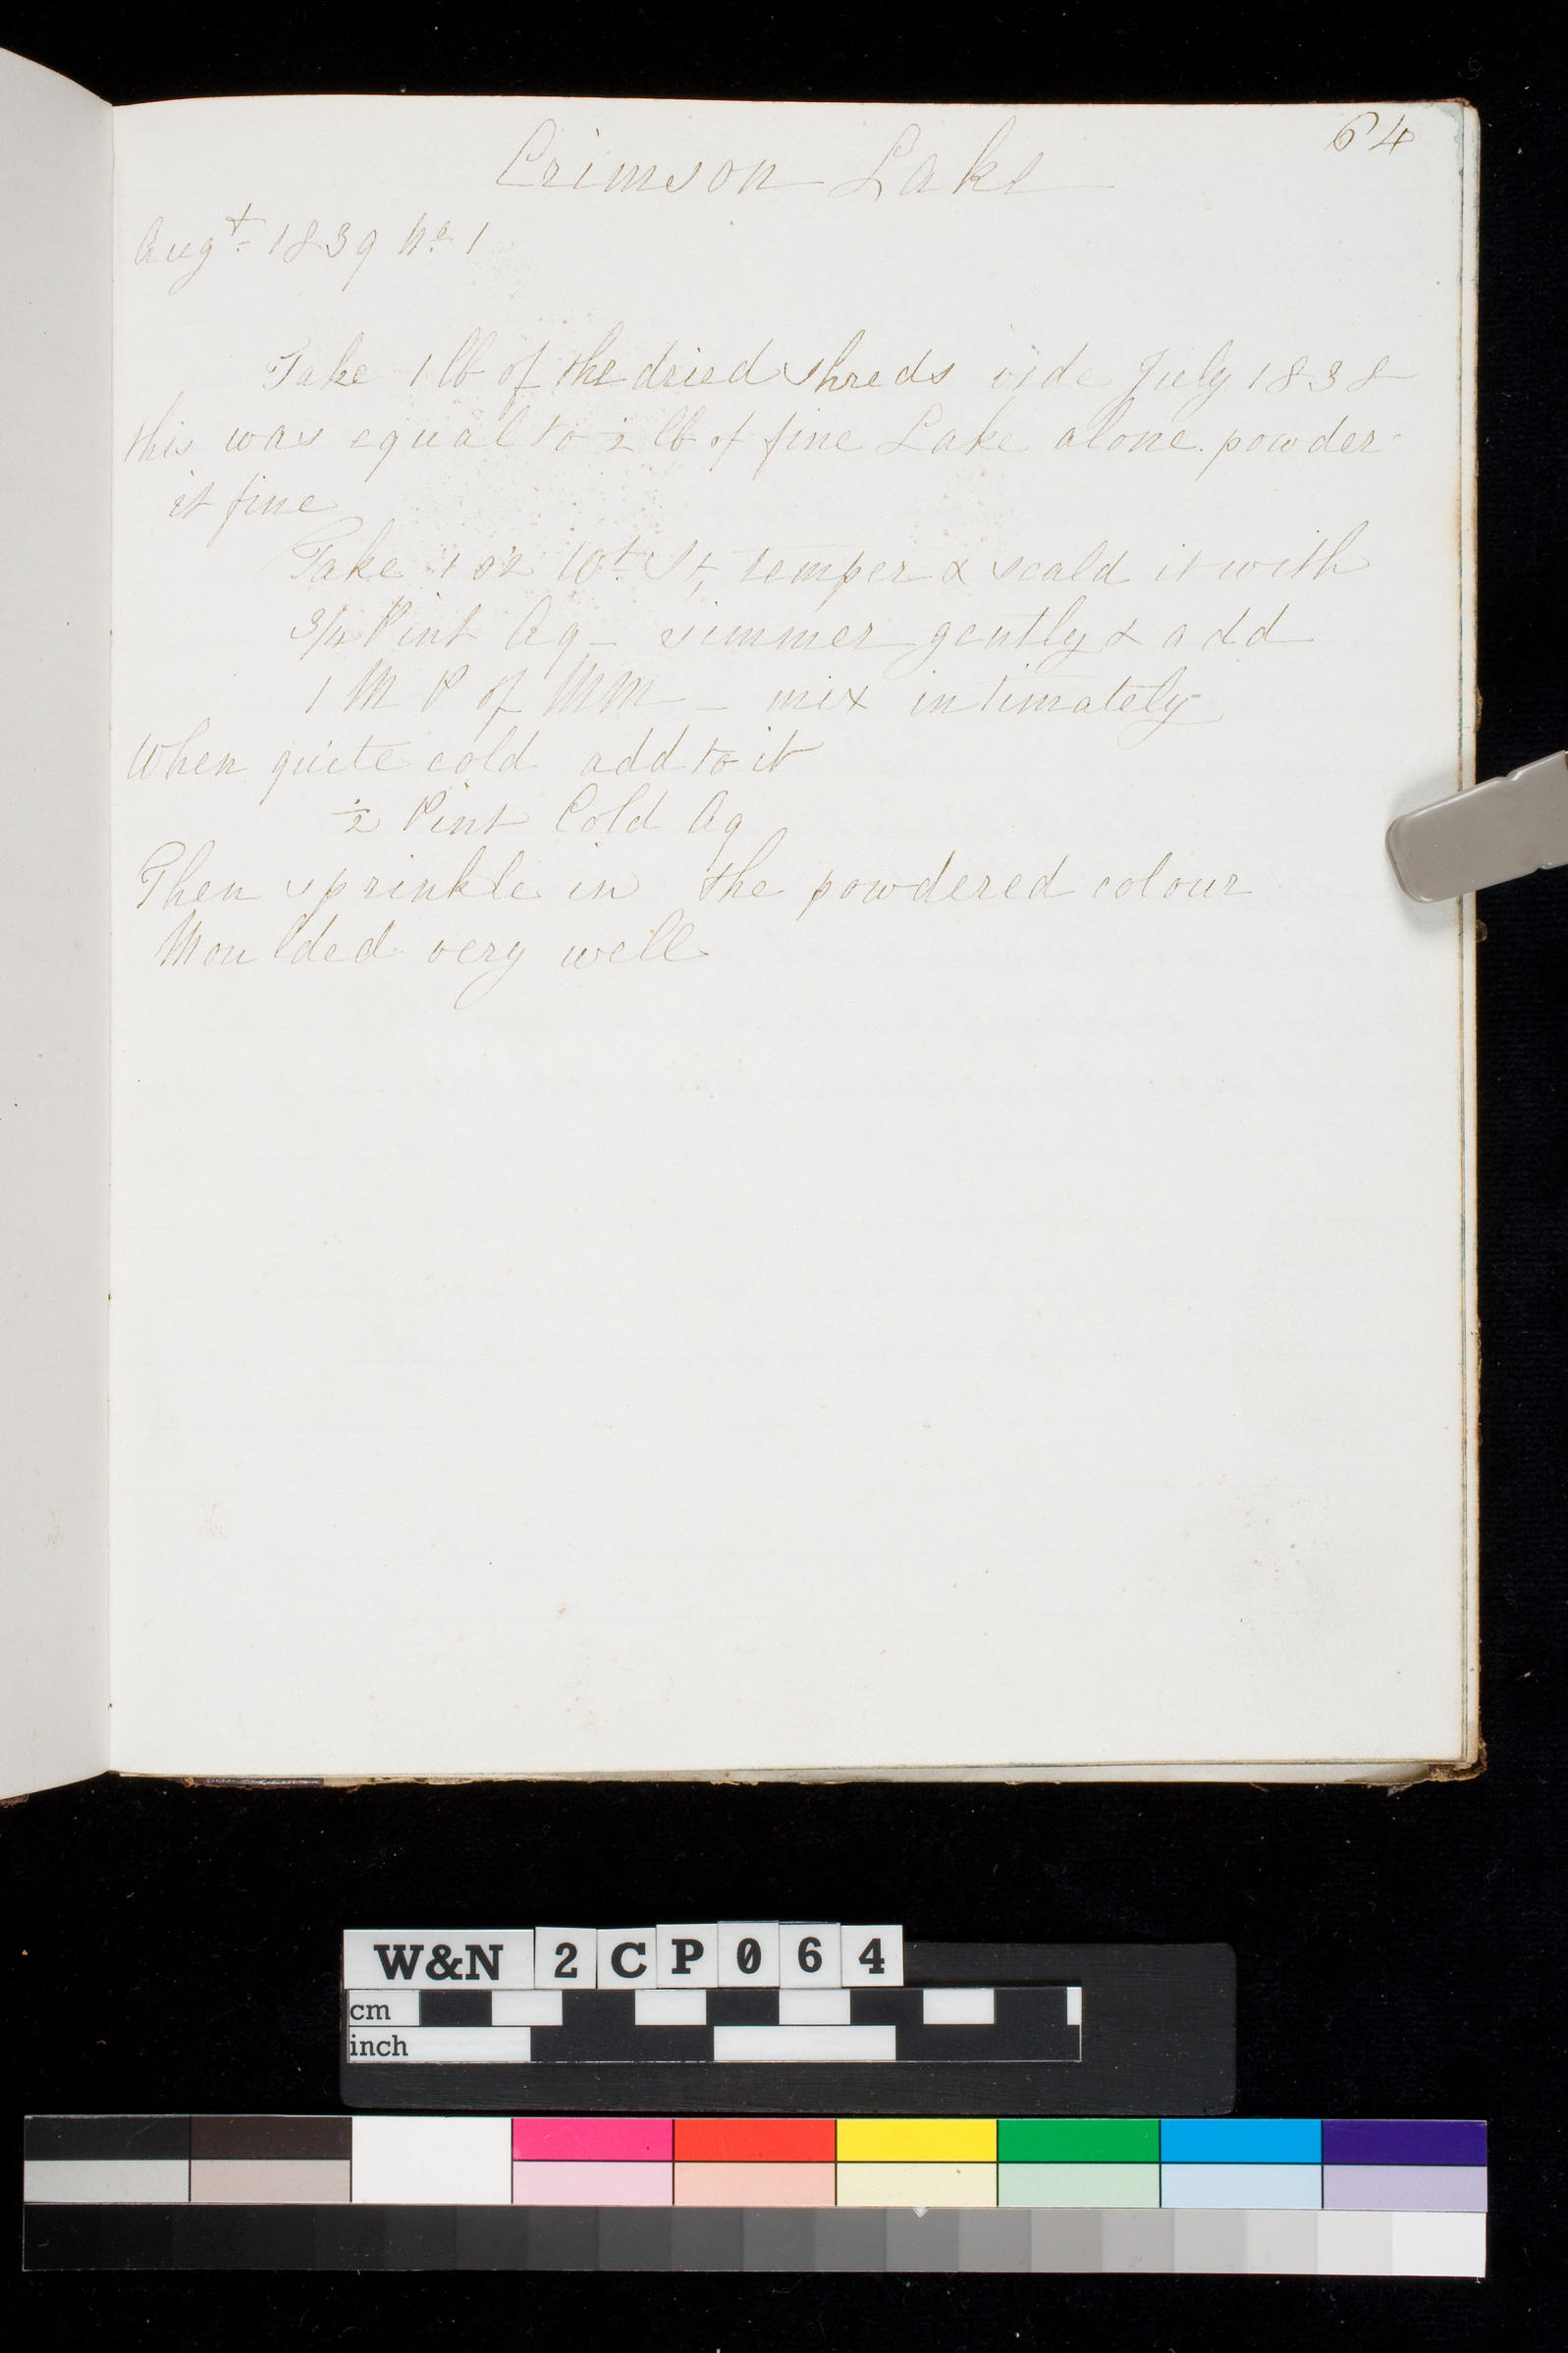 64
Crimson Lake
Augt 1839 No 1
Take 1 lb of the dried shreds vide July 1838
this was equal to ½ lb of fine Lake alone. powder
it fine
Take 1 oz Wt. St, temper & scald it with
3/4 Pint Aq - simmer gently & add
1 M P of MM - mix intimately
When quite cold add to it
½ Pint Cold Aq
Then sprinkle in the powdered colour
Moulded very well
W&N 2CP064
cm
inch